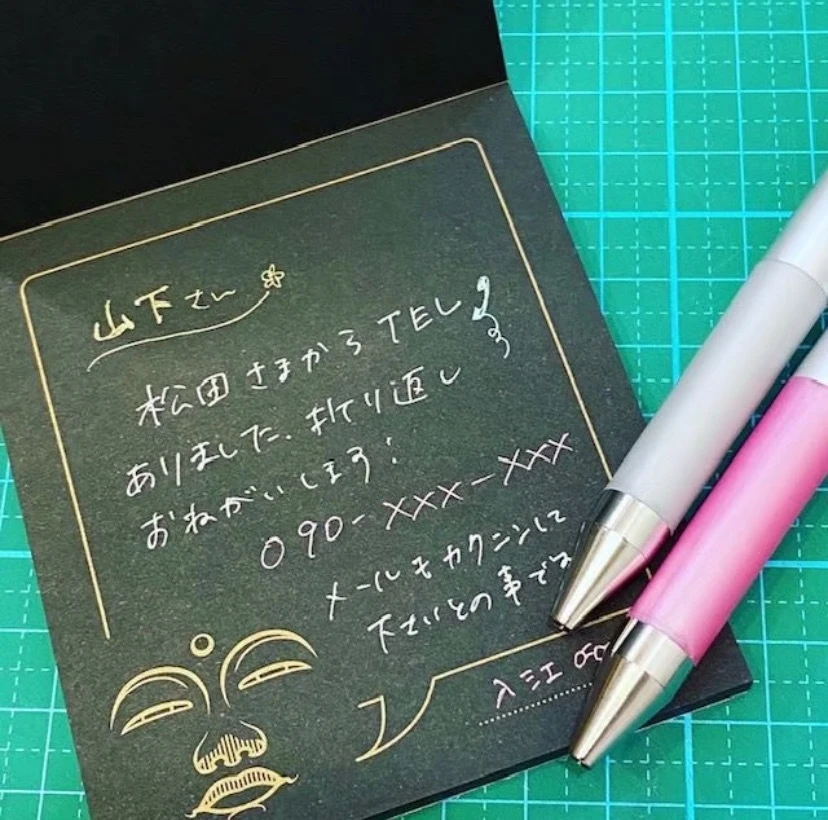 山下さん
松田さまから TEL
ありました、折り返し
おねがいします!
090-XXX-XXX
メールもカクニンして
下さいとの事です
入江